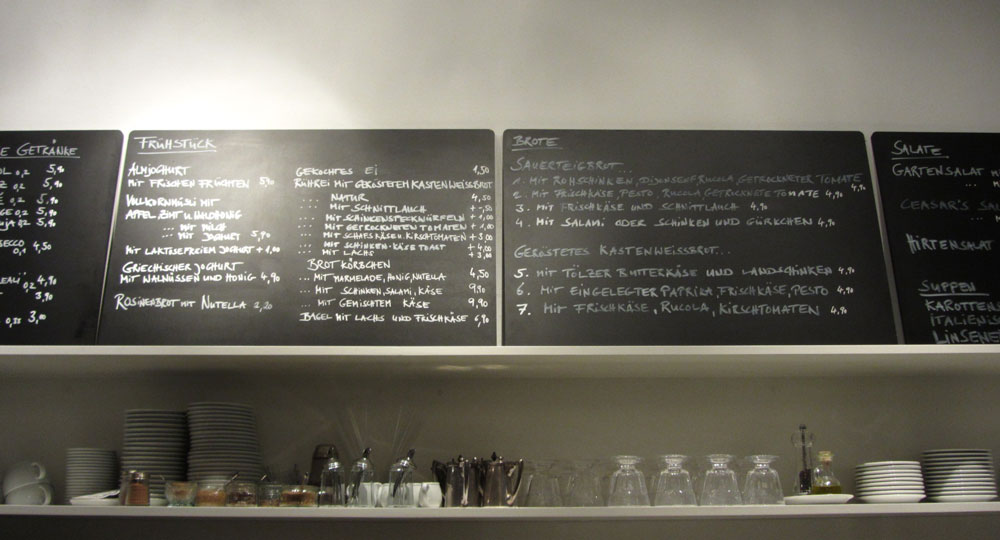 E GETRÄNKE
0,2 5,90
0,2 5,90
0,2 5,90
0,2 5,90
0,2 5,90
SECCO
0,2 4,50
4,90
0,2
3,90
0,33 3,00
FRÜHSTÜCK
ALMJOGHURT
MIT FRISCHEN FRÜCHTEN 5,90
VOLLKORNMÜSLI MIT
APFEL ZIMT U WALDHONIG
... MIT MILCH
... MIT JOGHURT 5,90
MIT LAKTOSEFREIEM JOGHURT + 1,00
GRIECHISCHER JOGHURT
MIT WALNÜSSEN UND HONIG 4,90
ROSINENBROT MIT NUTELLA 2,20
GEKOCHTES EI 1,50
RÜHREI MIT GERÖSTETEM KASTENWEISSBROT
... NATUR 4,50
... MIT SCHNITTLAUCH + ,50
... MIT SCHINKENSPECKWÜRFELN + 1,00
... MIT GETROCKNETEN TOMATEN + 1,00
... MIT SCHAFSKÄSE U. KIRSCHTOMATEN + 3,00
... MIT SCHINKEN-KÄSE TOAST + 4,00
... MIT LACHS + 3,00
BROT KÖRBCHEN
... MIT MARMELADE, HONIG, NUTELLA 4,50
... MIT SCHINKEN, SALAMI, KÄSE 9,90
... MIT GEMISCHTEM KÄSE 9,90
BAGEL MIT LACHS UND FRISCHKÄSE 6,90
BROTE
SAUERTEIGBROT...
1. MIT ROHSCHINKEN, DIJONSENF RUCOLA GETROCKNETER TOMATE 4,90
2. MIT FRISCHKÄSE PESTO, RUCOLA GETROCKNETE TOMATE 4,90
3. MIT FRISCHKÄSE UND SCHNITTLAUCH 4,90
4. MIT SALAMI ODER SCHINKEN UND GÜRKCHEN 4,90
GERÖSTETES KASTENWEISSBROT...
5. MIT TÖLZER BUTTERKÄSE UND LANDSCHINKEN 4,90
6. MIT EINGELEGTER PAPRIKA, FRISCHKÄSE, PESTO 4,90
7. MIT FRISCHKÄSE, RUCOLA, KIRSCHTOMATEN 4,90
SALATE
GARTENSALAT
... MIT
CEASAR'S SA
HIRTENSALAT
SUPPEN
KAROTTEN
ITALIENIS
LINSENE